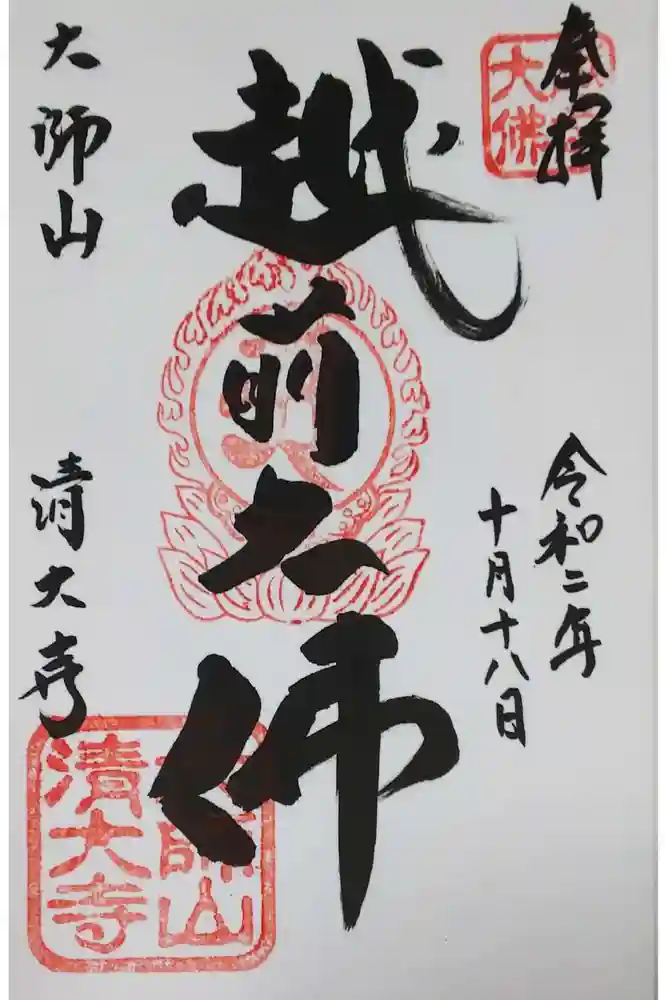 奉拝
令和二年
十月十八日
越前大佛
大師山
清大寺
大佛
大師山
清大寺